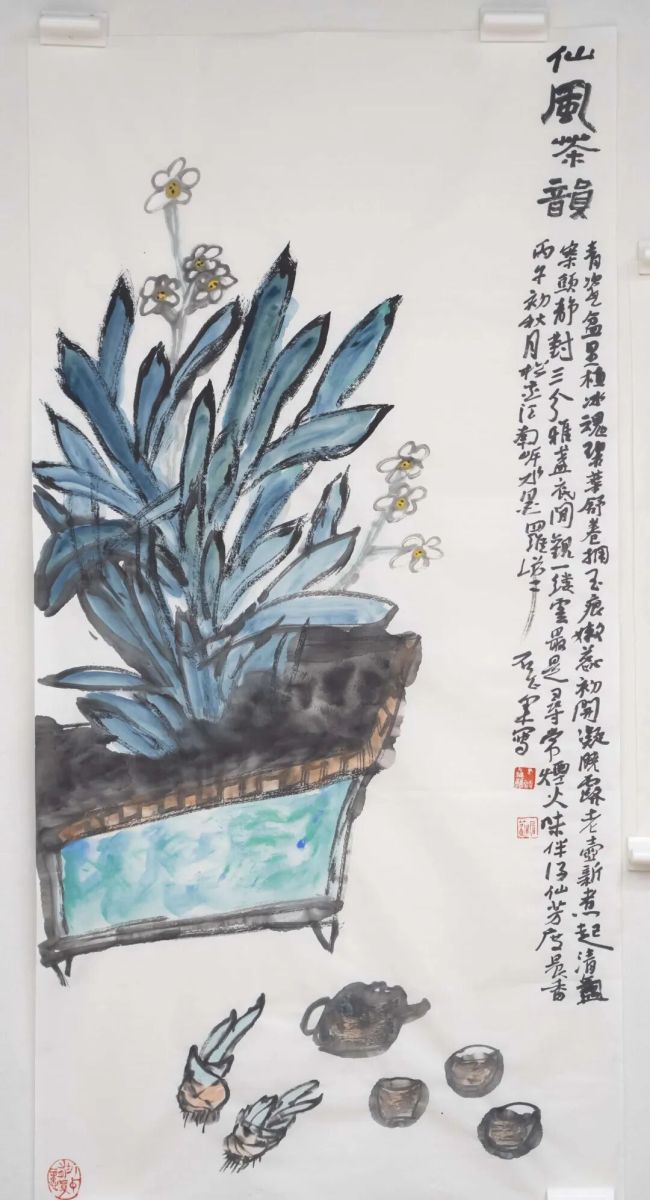 仙風茶韻
青瓷盆里植冰魂翠葉舒卷拥玉痕嫩蕊初開凝曉露老壺新煮起清氳
案頭静對三分雅盞底閒觀一縷雲最是尋常煙火味伴得仙芳晨香
丙午初秋月於江南岸水墨羅
石墨寫